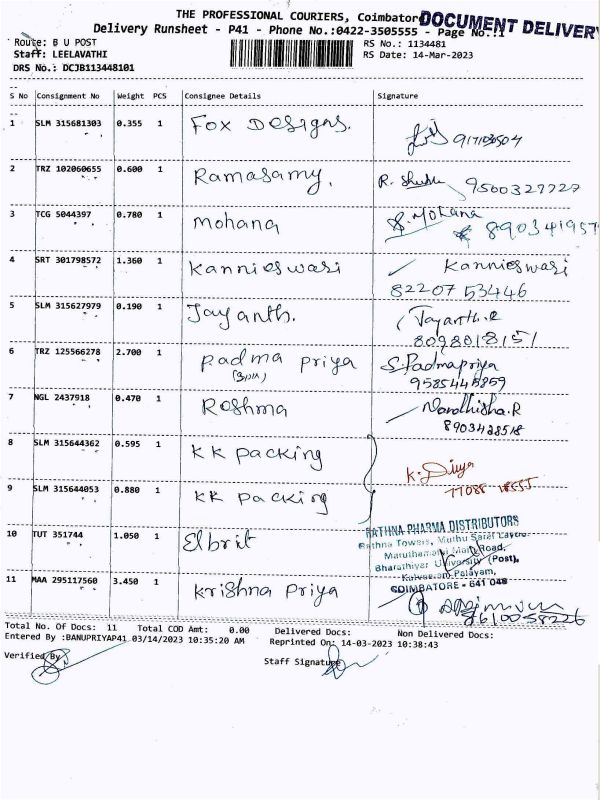 THE PROFESSIONAL COURIERS, Coimbator
DOCUMENT DELIVERY
Delivery Runsheet - P41 - Phone No.:0422-3505555 - Page No.:1
Route: B U POST
RS No.: 1134481
Staff: LEELAVATHI
RS Date: 14-Mar-2023
DRS No.: DCJB113448101
S No Consignment No Weight PCS Consignee Details Signature
1 SLM 315681303 0.355 1 Fox Designs.
2 TRZ 102060655 0.600 1 Ramasamy, R. 9500327727
3 TCG 5044397 0.780 1 Mohana S. Mohana
890341957
4 SRT 301798572 1.360 1 Kannieswari Kannieswari
82207 53446
5 SLM 315627979 0.190 1 Jayanth. Jayanth.R
8098018151
6 TRZ 125566278 2.700 1 Padma Priya S.Padmapriya
9585445859
7 NGL 2437918 0.470 1 Roshma Nardhisha.R
8903428518
8 SLM 315644362 0.595 1 KK Packing
K. Divya
9 SLM 315644053 0.880 1 KK Packing
10 TUT 351744 1.050 1 Elbrit
RATHNA PHARMA DISTRIBUTORS
Rathna Towers, Muthu Sarai Layout
Maruthamalai Main Road,
Bharathiyar University (Post),
Kalveeram Palayam,
COIMBATORE - 641 046
11 MAA 295117560 3.450 1 Krishna Priya
8610058226
Total No. Of Docs: 11 Total COD Amt: 0.00 Delivered Docs: Non Delivered Docs:
Entered By :BANUPRIYAP41 03/14/2023 10:35:20 AM Reprinted On: 14-03-2023 10:38:43
Verified By
Staff Signature